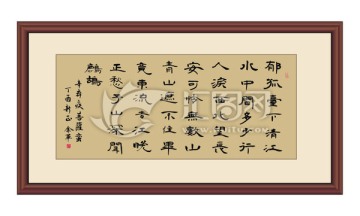 郁孤臺下清江
水中間多少行
人淚西北望長
安可憐無數山
青山遮不住畢
竟東流去江晚
正愁予山深聞
鷓鴣
辛弃疾菩薩蠻
丁酉新正